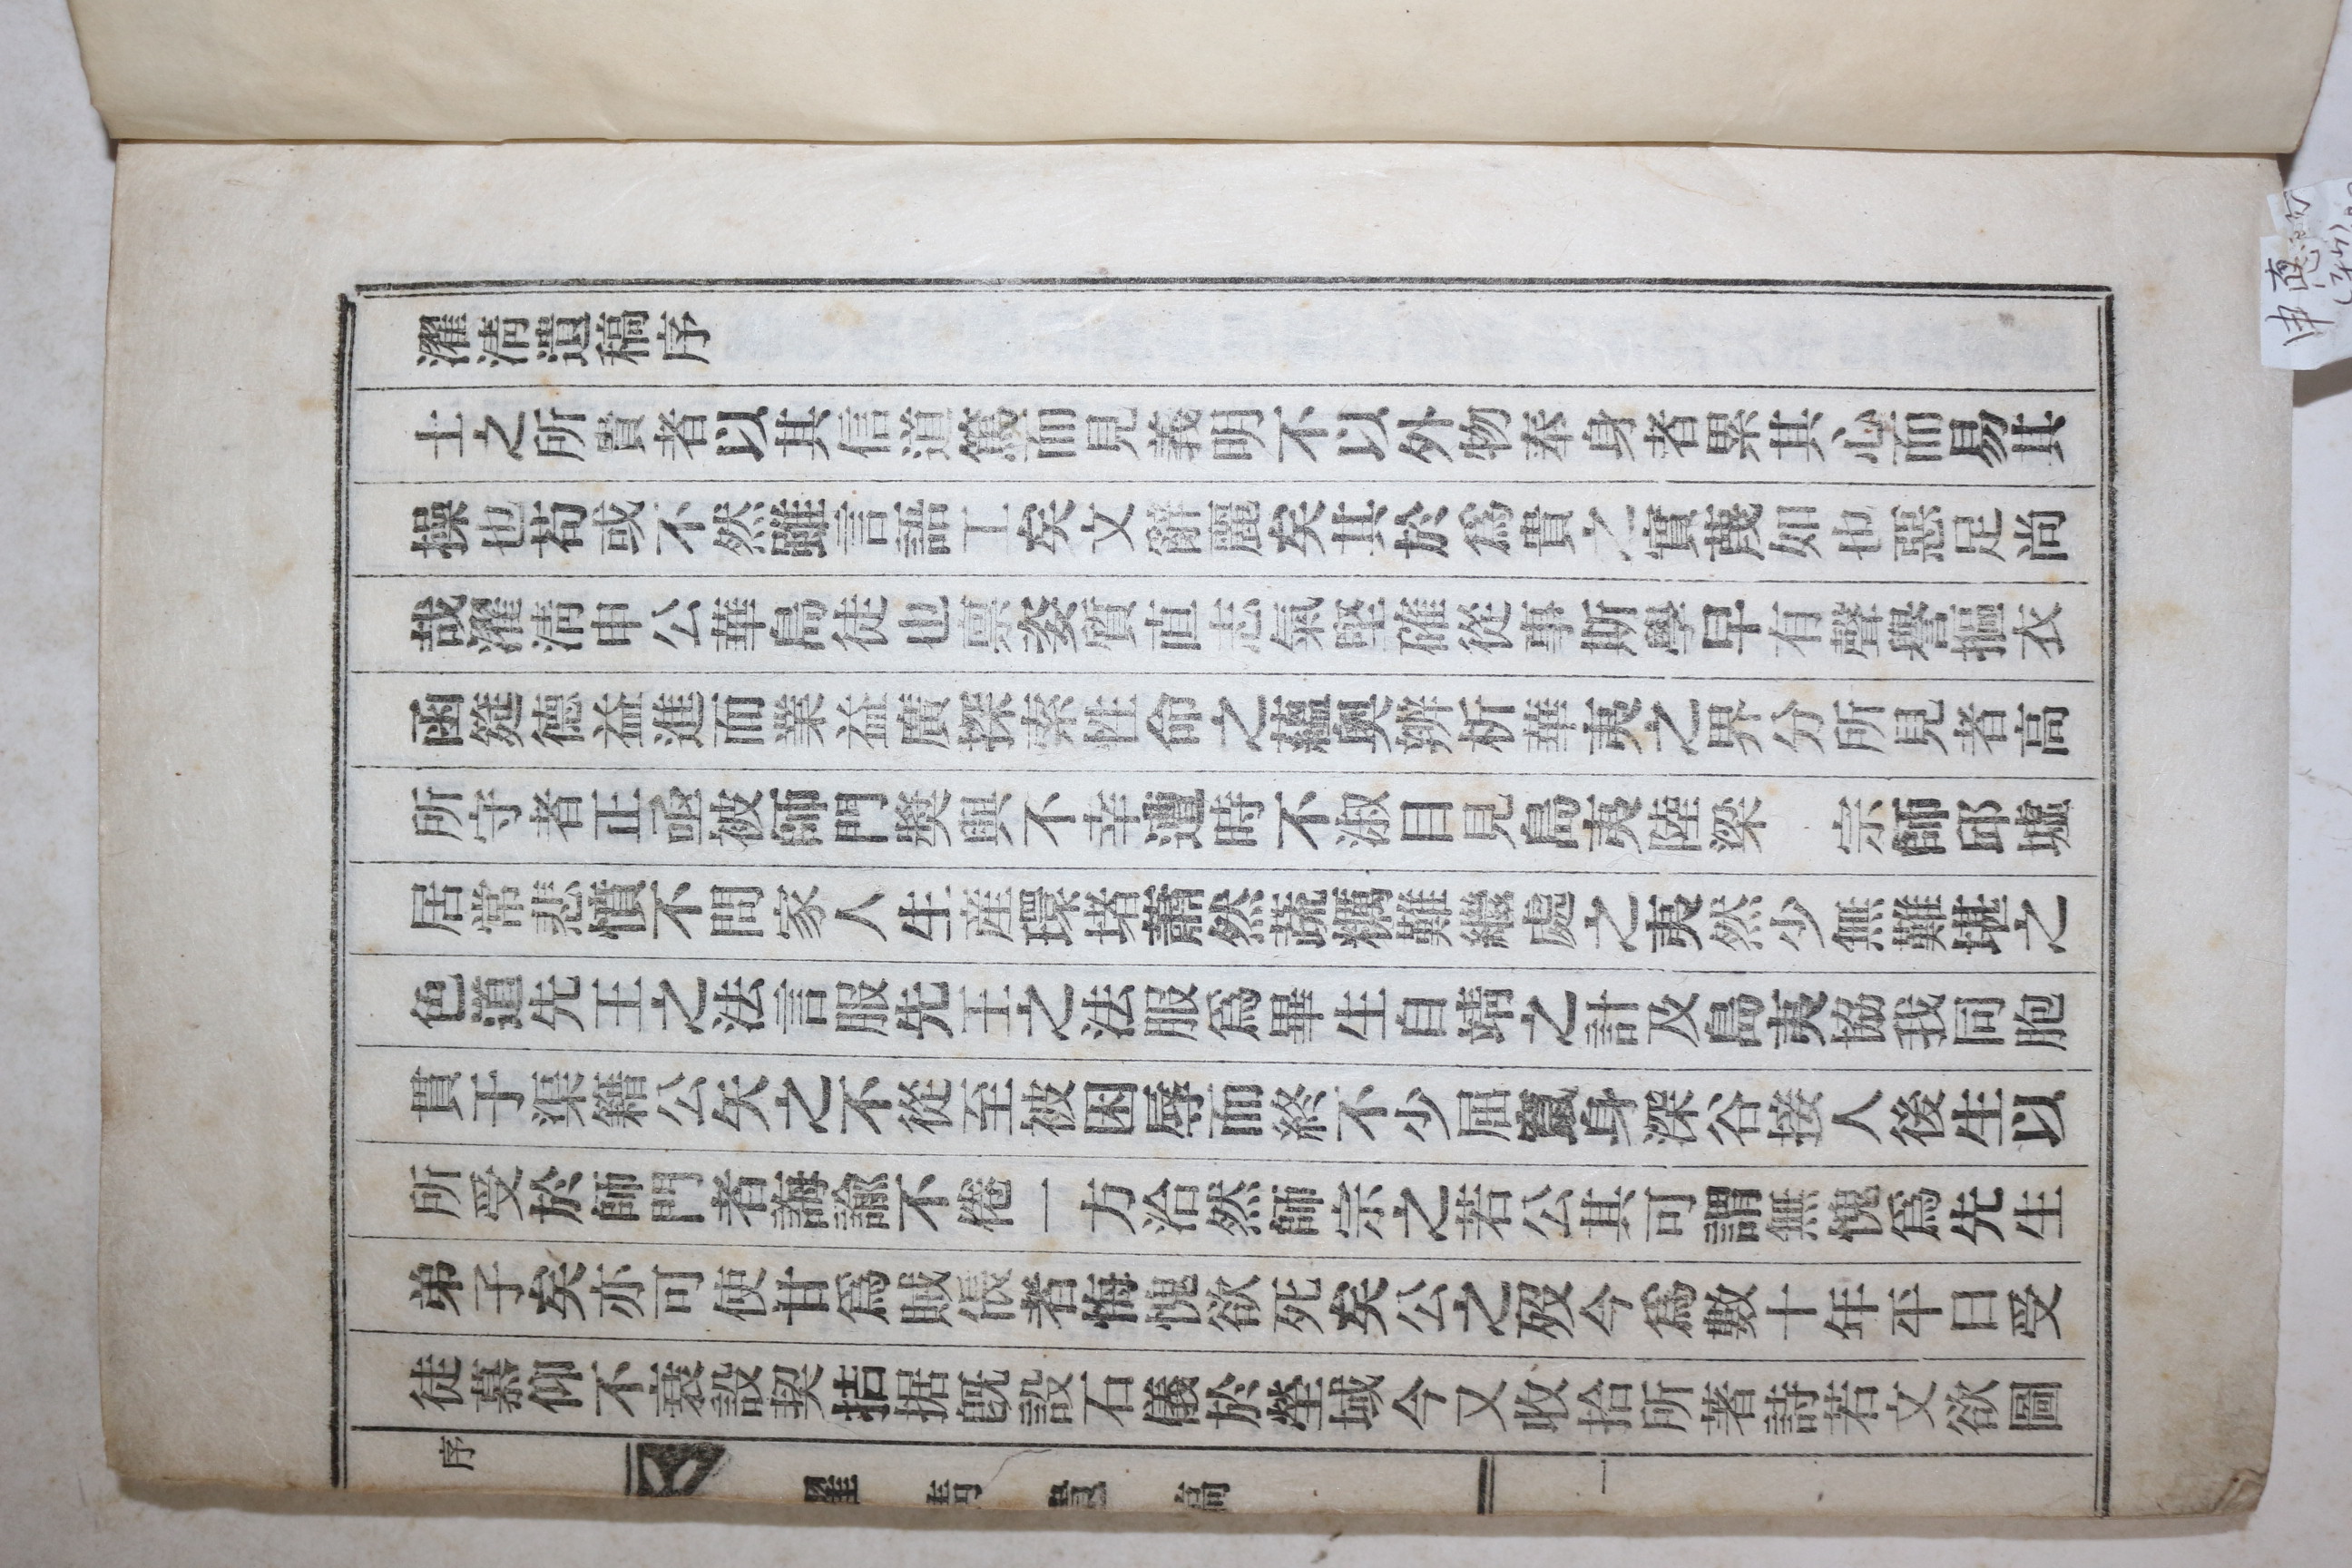 濯淸遺稿序
士之所貴者以其信道篤而見義明不以外物奉身者累其心而易其
操也苟或不然雖言語工矣文辭麗矣其於爲貴之實蔑如也惡足尚
哉濯淸申公華島徒也禀姿質直志氣堅確從事斯學早有聲譽摳衣
函筵德益進而業益廣探索性命之蘊奧辨析華夷之界分所見者高
所守者正亟被師門獎與不幸遭時不淑目見島夷陸梁 宗師邱墟
居常悲憤不問家人生産環堵蕭然蔬糲難繼處之夷然少無難堪之
色道先王之法言服先王之法服爲畢生自靖之計及島夷協我同胞
貫于渠籍公矢之不從至被困辱而終不少屈竄身深谷接人後生以
所受於師門者誨諭不倦一方洽然師宗之若公其可謂無愧爲先生
弟子矣亦可使甘爲賊倀者悔愧欲死矣公之歿今爲數十年平日受
徒慕仰不衰設契拮据旣設石儀於塋域今又收拾所著詩若文欲圖
序
濯淸遺稿
一
申